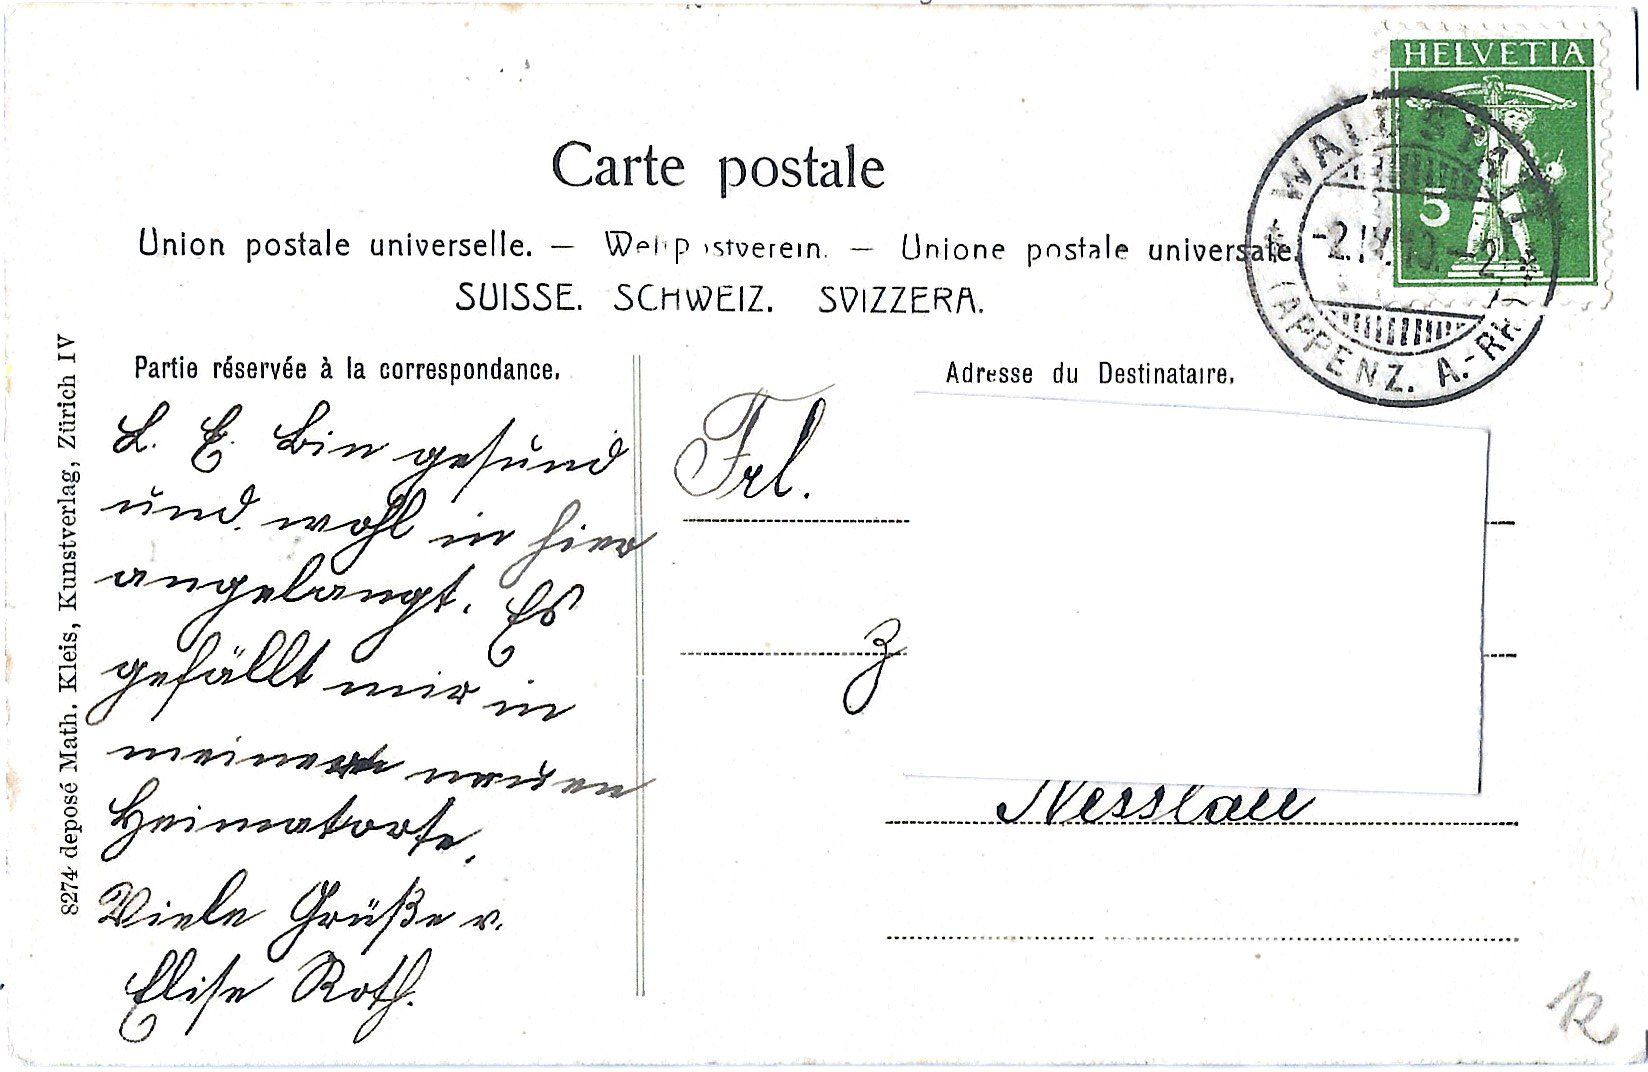 HELVETIA
5
WALDSTATT
-2.IV.10.-2
(APPENZ. A.-RH.)
Carte postale
Union postale universelle. — Weltpostverein. — Unione postale universale.
SUISSE. SCHWEIZ. SVIZZERA.
Partie réservée à la correspondance.
Adresse du Destinataire.
L. E. Bin gesund
und wohl in hier
angelangt. Es
gefällt mir in
meinem neuen
Heimatorte.
Viele Grüße v.
Elise Roth.
Frl.
z
Nesslau
8274 deposé Math. Kleis, Kunstverlag, Zürich IV